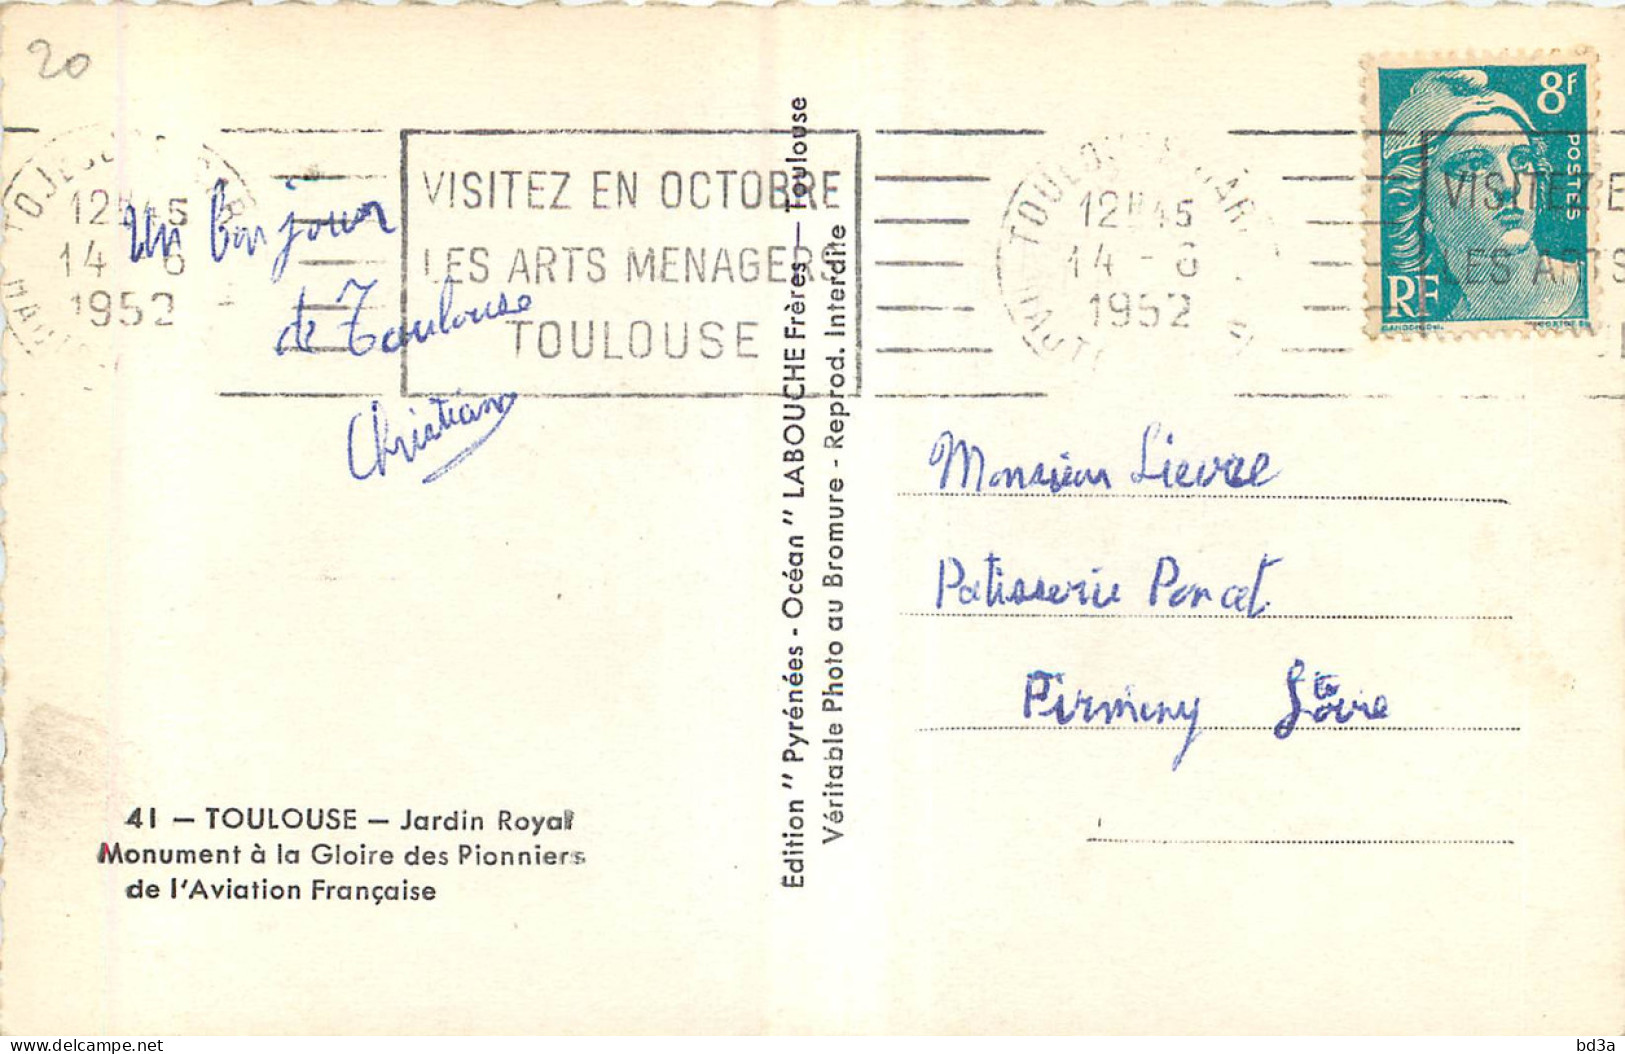 20
TOULOUSE GARE
12H45
14 - 6
1952
VISITEZ EN OCTOBRE
LES ARTS MENAGERS
TOULOUSE
TOULOUSE GARE
12H45
14 - 6
1952
8F
POSTES
RF
VISITEZ E
LES ARTS
Un bonjour
de Toulouse
Christian
Monsieur Lievre
Patisserie Poncet
Firminy Loire
41 — TOULOUSE — Jardin Royal
Monument à la Gloire des Pionniers
de l'Aviation Française
Edition "Pyrénées - Océan" LABOUCHE Frères — Toulouse
Véritable Photo au Bromure - Reprod. Interdite
delcampe.net
bd3a